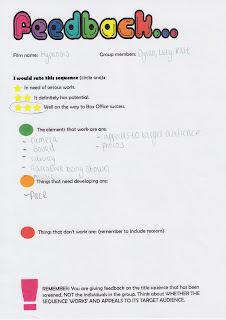 Feedback...
Film name: Hypnosis Group members: Dylan, Lucy, Matt
I would rate this sequence (circle one):
In need of serious work.
It definitely has potential.
Well on the way to Box Office success.
The elements that work are are:
- camera
- appeals to target audience
- sound
- photos
- editing
- narrative being shown
Things that need developing are:
- Pace
Things that don't work are: (remember to include reasons)
REMEMBER: You are giving feedback on the title squence that has been
screened, NOT the individuals in the group. Think about WHETHER THE
SEQUENCE WORKS AND APPEALS TO ITS TARGET AUDIENCE.